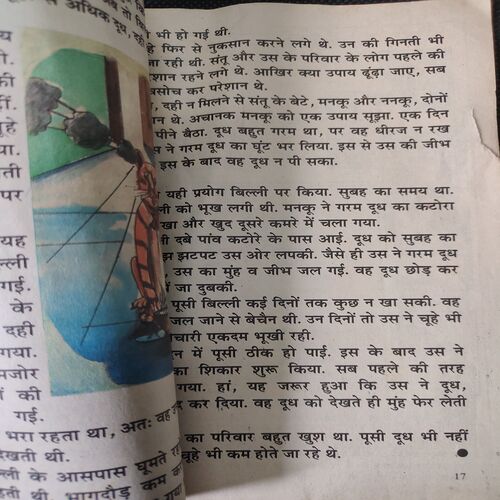 से अधिक दूध, दही
य
ी.
की
हीं.
चूहे
या.
ती
पर
यह
ल्ली
गई.
के
दही
गया.
मजोर
ों की
गई.
भरा रहता था, अतः वह
देखती थी.
ल्ली के आसपास घूमते रह
थी. भागदौड़ कम
भी हो गई थी.
फिर से नुकसान करने लगे थे. उन की गिनती भी
रही थी. संतू और उस के परिवार के लोग पहले की
शान रहने लगे थे. आखिर क्या उपाय ढूंढ़ा जाए, सब
सोच कर परेशान थे.
, दही न मिलने से संतू के बेटे, मनकू और ननकू, दोनों
न थे. अचानक मनकू को एक उपाय सूझा. एक दिन
पीने बैठा. दूध बहुत गरम था, पर वह धीरज न रख
ने गरम दूध का घूंट भर लिया. इस से उस की जीभ
इस के बाद वह दूध न पी सका.
यही प्रयोग बिल्ली पर किया. सुबह का समय था.
को भूख लगी थी. मनकू ने गरम दूध का कटोरा
खा और खुद दूसरे कमरे में चला गया.
दबे पांव कटोरे के पास आई. दूध को सुबह का
झटपट उस ओर लपकी. जैसे ही उस ने गरम दूध
उस का मुंह व जीभ जल गई. वह दूध छोड़ कर
में जा दुबकी.
पूसी बिल्ली कई दिनों तक कुछ न खा सकी. वह
जल जाने से बेचैन थी. उन दिनों तो उस ने चूहे भी
चारी एकदम भूखी रही.
न में पूसी ठीक हो पाई. इस के बाद उस ने
का शिकार शुरू किया. सब पहले की तरह
गया. हां, यह जरूर हुआ कि उस ने दूध,
कर दिया. वह दूध को देखते ही मुंह फेर लेती
का परिवार बहुत खुश था. पूसी दूध भी नहीं
चूहे भी कम होते जा रहे थे.
17